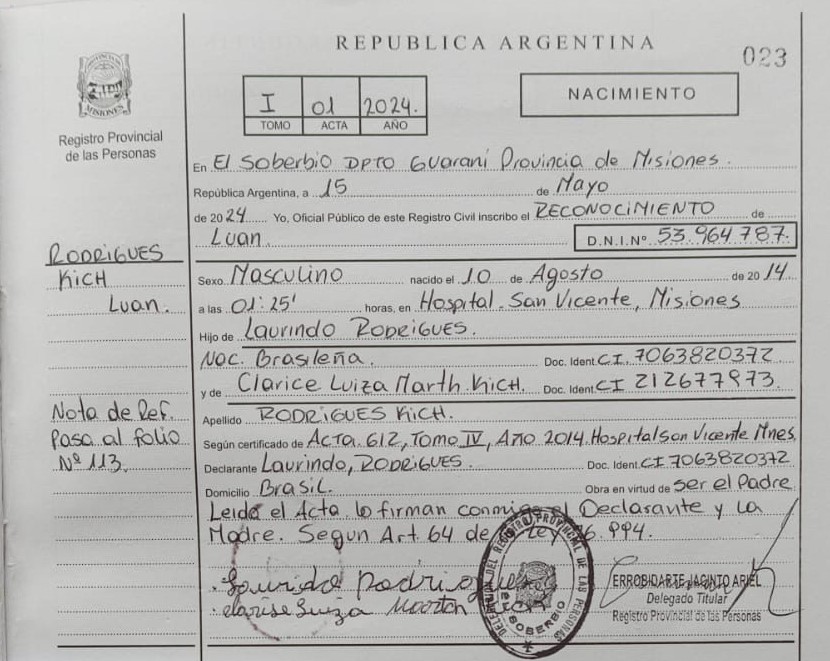 REPUBLICA ARGENTINA
023
PROVINCIA DE
MISIONES
Registro Provincial
de las Personas
I 01 2024.
TOMO ACTA AÑO
NACIMIENTO
En El Soberbio DPTO Guaraní Provincia de Misiones.
República Argentina, a 15 de Mayo
de 2024 Yo, Oficial Público de este Registro Civil inscribo el RECONOCIMIENTO de
Luan. D.N.I.Nº 53.964.787.
RODRIGUES
KICH
Luan.
Sexo Masculino nacido el 10 de Agosto de 2014
a las 01:25' horas, en Hospital San Vicente, Misiones
Hijo de Laurindo RODRIGUES.
Nac. Brasileña. Doc. Ident. C.I. 7063820372
y de Clarice Luiza Marth KICH. Doc. Ident. CI 212677973.
Apellido RODRIGUES KICH.
Según certificado de Acta 612, Tomo IV, Año 2014. Hospital San Vicente Mnes
Declarante Laurindo, RODRIGUES. Doc. Ident. CI 7063820372
Domicilio Brasil. Obra en virtud de ser el Padre
Leída el Acta lo firman conmigo el Declarante y la
Madre. Segun Art. 64 de la Ley 26.994.
Nota de Ref.
Pasa al folio
Nº 113.
DELEGACION DEL REGISTRO PROVINCIAL DE LAS PERSONAS
EL SOBERBIO
ERROBIDARTE JACINTO ARIEL
Delegado Titular
Registro Provincial de las Personas